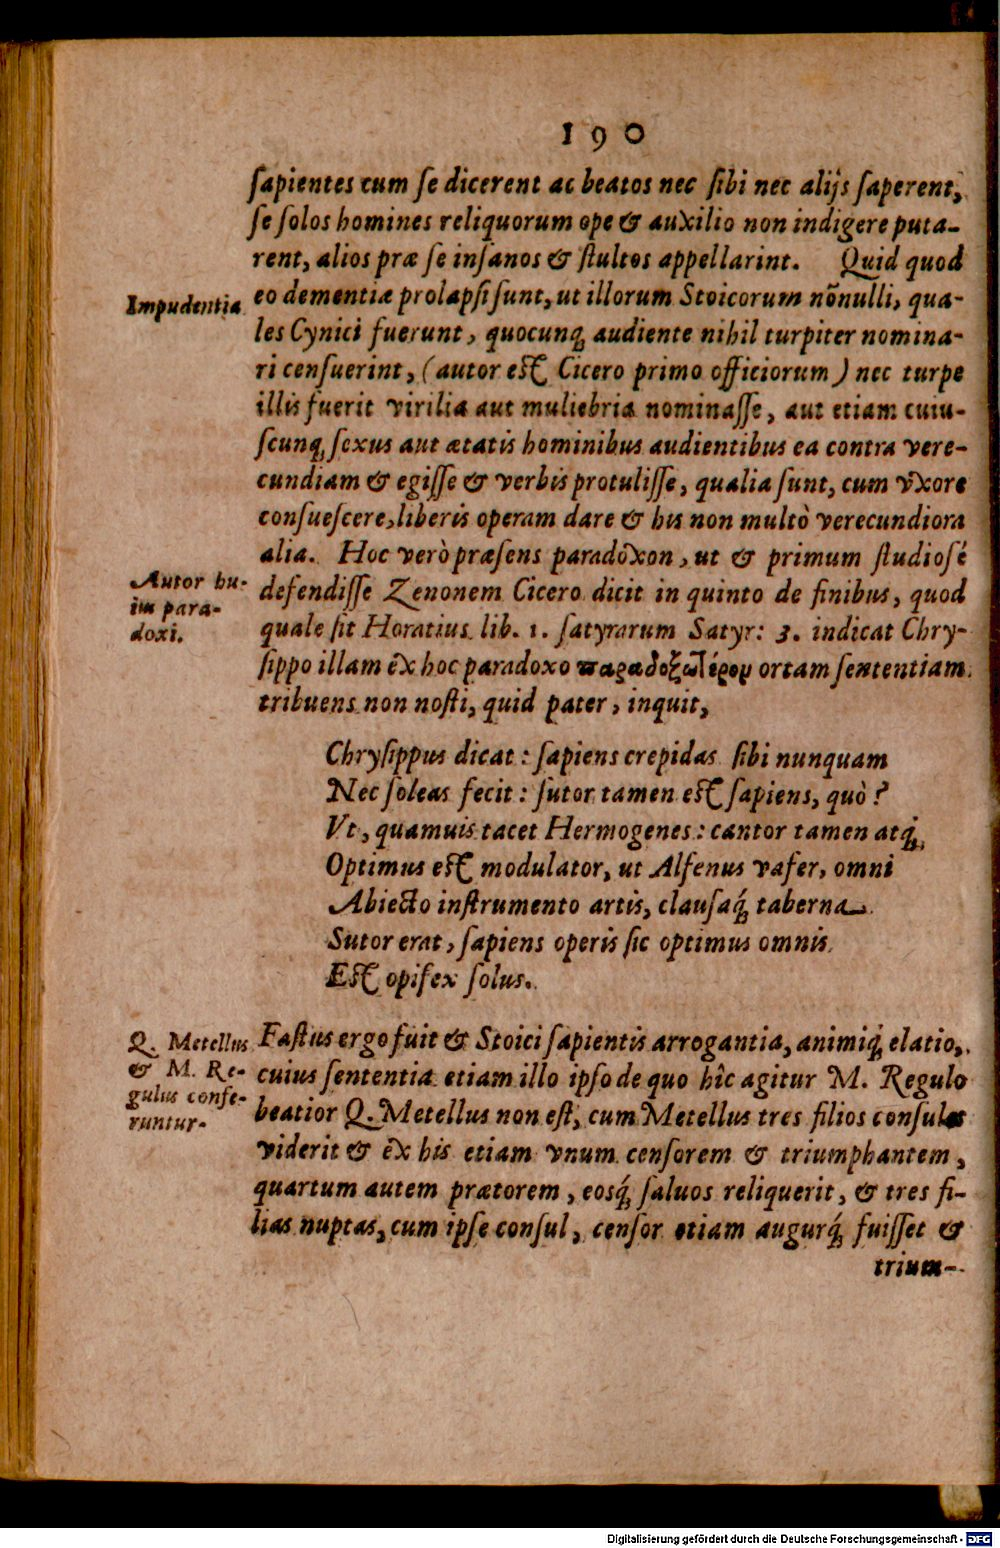 190
ſapientes cum ſe dicerent ac beatos nec ſibi nec alijs ſaperent,
ſe ſolos homines reliquorum ope & auxilio non indigere puta-
rent, alios præ ſe inſanos & ſtultos appellarint. Quid quod
Impudentia
eo dementiæ prolapſi ſunt, ut illorum Stoicorum nõnulli, qua-
les Cynici fuerunt, quocunq; audiente nihil turpiter nomina-
ri cenſuerint, (autor eſt Cicero primo officiorum) nec turpe
illis fuerit virilia aut muliebria nominaſſe, aut etiam cuiu-
ſcunq; ſexus aut ætatis hominibus audientibus ea contra vere-
cundiam & egiſſe & verbis protuliſſe, qualia ſunt, cum vxore
conſueſcere, liberis operam dare & his non multò verecundiora
alia. Hoc verò præſens paradoxon, ut & primum ſtudioſè
Autor hu-
ius para-
doxi.
defendiſſe Zenonem Cicero dicit in quinto de finibus, quod
quale ſit Horatius lib. 1. ſatyrarum Satyr: 3. indicat Chry-
ſippo illam êx hoc paradoxo παραδοξωτέρου ortam ſententiam
tribuens non noſti, quid pater, inquit,
Chryſippus dicat: ſapiens crepidas ſibi nunquam
Nec ſoleas fecit: ſutor tamen eſt ſapiens, quò?
Vt, quamuis tacet Hermogenes: cantor tamen atq;
Optimus eſt modulator, ut Alfenus vafer, omni
Abiecto inſtrumento artis, clauſaq́; taberna
Sutor erat, ſapiens operis ſic optimus omnis
Eſt opifex ſolus.
Q. Metellus
& M. Re-
gulus confe-
runtur.
Faſtus ergo fuit & Stoici ſapientis arrogantia, animiq́; elatio,
cuius ſententia etiam illo ipſo de quo hîc agitur M. Regulo
beatior Q. Metellus non eſt, cum Metellus tres filios conſules
viderit & êx his etiam vnum cenſorem & triumphantem,
quartum autem prætorem, eosq́; ſaluos reliquerit, & tres fi-
lias nuptas, cum ipſe conſul, cenſor etiam augurq́; fuiſſet &
trium-
Digitalisierung gefördert durch die Deutsche Forschungsgemeinschaft - DFG